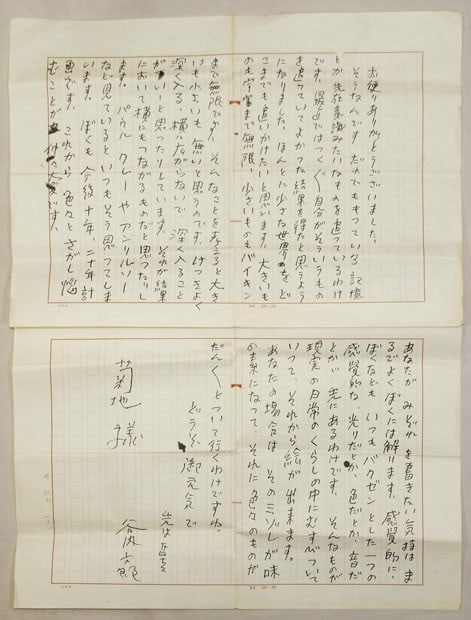 お便りありがとうございました。
そうなんです だれでももっている 記憶
とか先在意識みたいなものを追っているわけ
です。最近ではつく〲自分がそういうもの
を追っていてよかつた結果を得たと思うよう
になりました。ほんとに小さな世界をど
こまでも追いかけたいと思います。大きいも
のも宇宙まで無限、小さいものもバイキン
まで無限です。そんなことを考えると大き
いも小さいも無いと思うのです。けつきよく
深く入る、横に広がらないで、深く入ること
がいいと思ったりしています。それが結果
において横にもつながるものだと思つたりし
ます。パウル クレーやアンリルソー
など見ていると いつもそう思つてしま
います。ぼくも今後十年、二十年計
画です。これから 色々とさがし悩
むことが 大変です。
あなたが みぞれ を書きたい気持はま
るでよくぼくには解ります。感覚的に、
ぼくなども いつもバクゼンとした一つの
感覚的な、光りだとか、色だとか、音だ
とか、先にあるわけです。そんなものが
現実の日常のくらしの中にむすびついて
いって、それから絵が出来ます。
あなたの場合は そのミゾレが味
の素になって、それに色々のものが
だん〱とついて行くわけですね。
どうぞ 御元気で
先は
菊地 様
谷内六郎